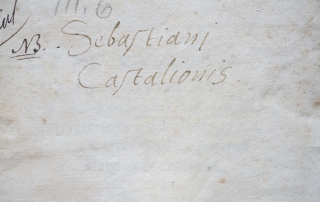 NB. Sebastiani
Castalionis.